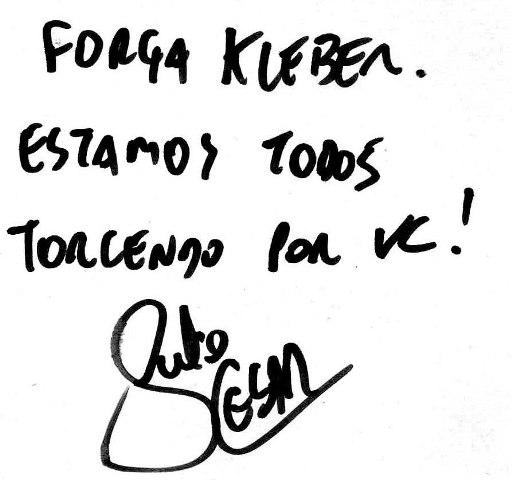 FORÇA KLEBER.
ESTAMOS TODOS
TORCENDO POR VC!
Julio
CESAR